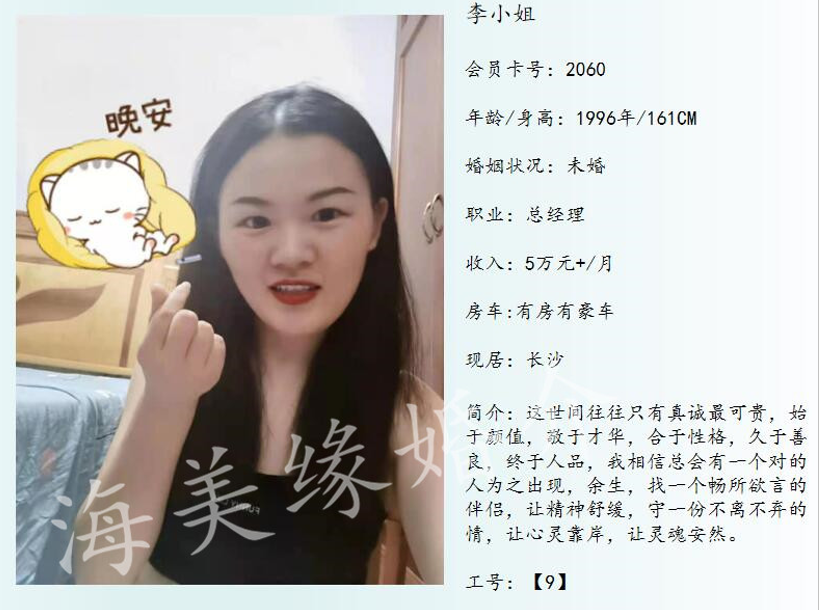 李小姐
会员卡号：2060
年龄/身高：1996年/161CM
婚姻状况：未婚
职业：总经理
收入：5万元+/月
房车:有房有豪车
现居：长沙
简介：这世间往往只有真诚最可贵，始
于颜值，敬于才华，合于性格，久于善
良，终于人品，我相信总会有一个对的
人为之出现，余生，找一个畅所欲言的
伴侣，让精神舒缓，守一份不离不弃的
情，让心灵靠岸，让灵魂安然。
工号：【9】
晚安
海美缘婚介